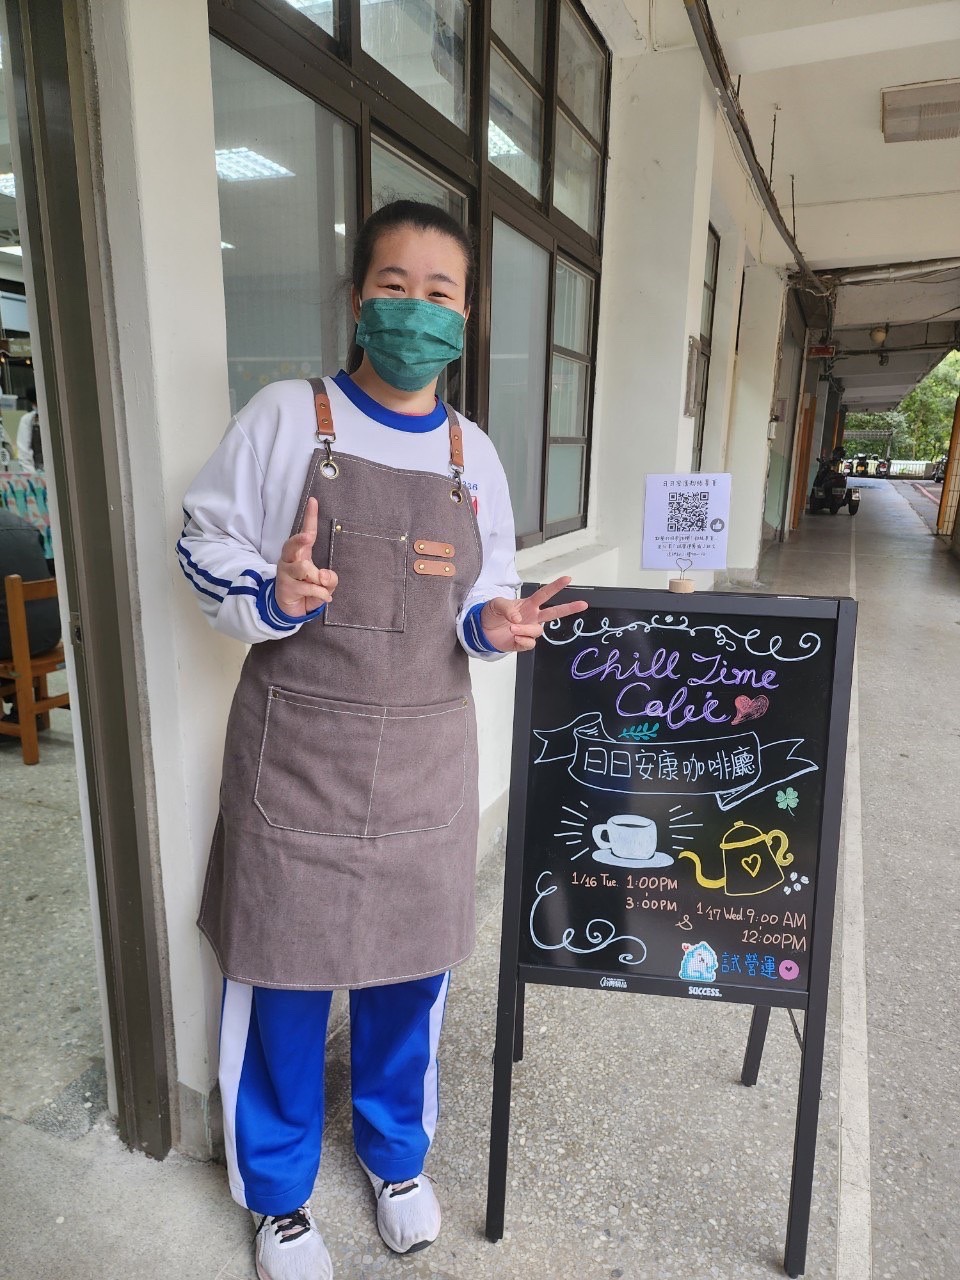 日日安康粉絲專頁
Chill Time
Café
日日安康咖啡廳
1/16 Tue. 1:00PM
3:00PM
&
1/17 Wed. 9:00 AM
12:00PM
試營運
SUCCESS